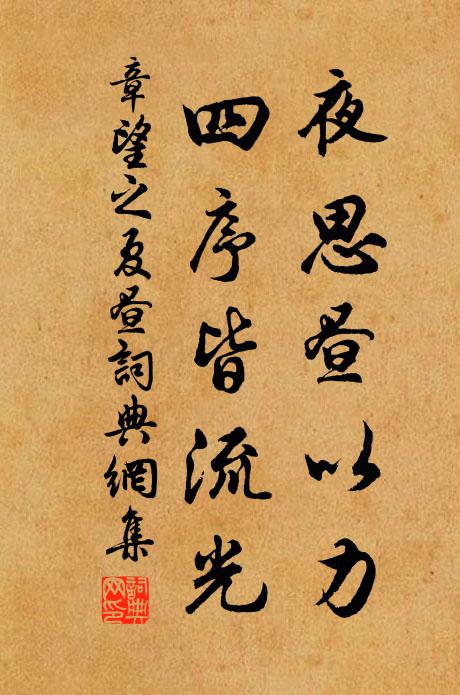 夜思昼以力
四序皆流光
章望之夏昼詞典網集
詞典
网印